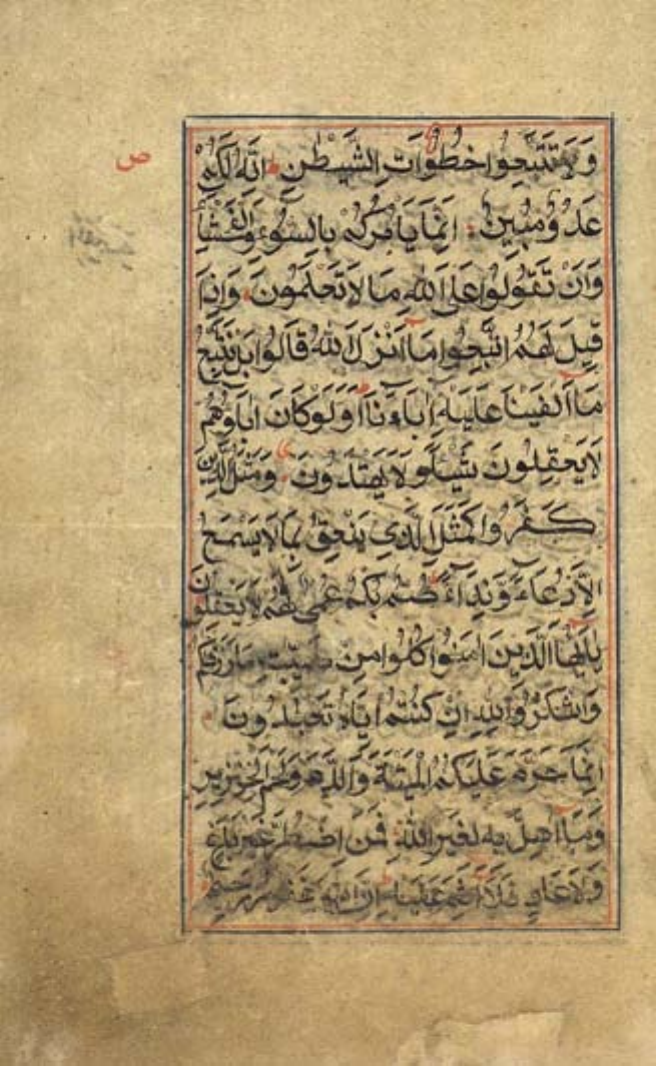 ص
وَلَا تَتَّبِعُوا خُطُوَاتِ الشَّيْطٰنِ اِنَّهُ لَكُمْ
عَدُوٌّ مُبِينٌ اِنَّمَا يَاْمُرُكُمْ بِالسُّوۤءِ وَالْفَحْشَاۤءِ
وَاَنْ تَقُولُوا عَلَى اللّٰهِ مَا لَا تَعْلَمُونَ وَاِذَا
قِيلَ لَهُمُ اتَّبِعُوا مَاۤ اَنْزَلَ اللّٰهُ قَالُوا بَلْ نَتَّبِعُ
مَاۤ اَلْفَيْنَا عَلَيْهِ اٰبَاۤءَنَا اَوَلَوْ كَانَ اٰبَاۤؤُهُمْ
لَا يَعْقِلُونَ شَيْئًا وَلَا يَهْتَدُونَ وَمَثَلُ الَّذِينَ
كَفَرُوا كَمَثَلِ الَّذِي يَنْعِقُ بِمَا لَا يَسْمَعُ
اِلَّا دُعَاۤءً وَنِدَاۤءً صُمٌّ بُكْمٌ عُمْيٌ فَهُمْ لَا يَعْقِلُونَ
يٰاَيُّهَا الَّذِينَ اٰمَنُوا كُلُوا مِنْ طَيِّبٰتِ مَا رَزَقْنٰكُمْ
وَاشْكُرُوا لِلّٰهِ اِنْ كُنْتُمْ اِيَّاهُ تَعْبُدُونَ
اِنَّمَا حَرَّمَ عَلَيْكُمُ الْمَيْتَةَ وَالدَّمَ وَلَحْمَ الْخِنْزِيرِ
وَمَاۤ اُهِلَّ بِهِ لِغَيْرِ اللّٰهِ فَمَنِ اضْطُرَّ غَيْرَ بَاغٍ
وَلَا عَادٍ فَلَاۤ اِثْمَ عَلَيْهِ اِنَّ اللّٰهَ غَفُورٌ رَحِيمٌ